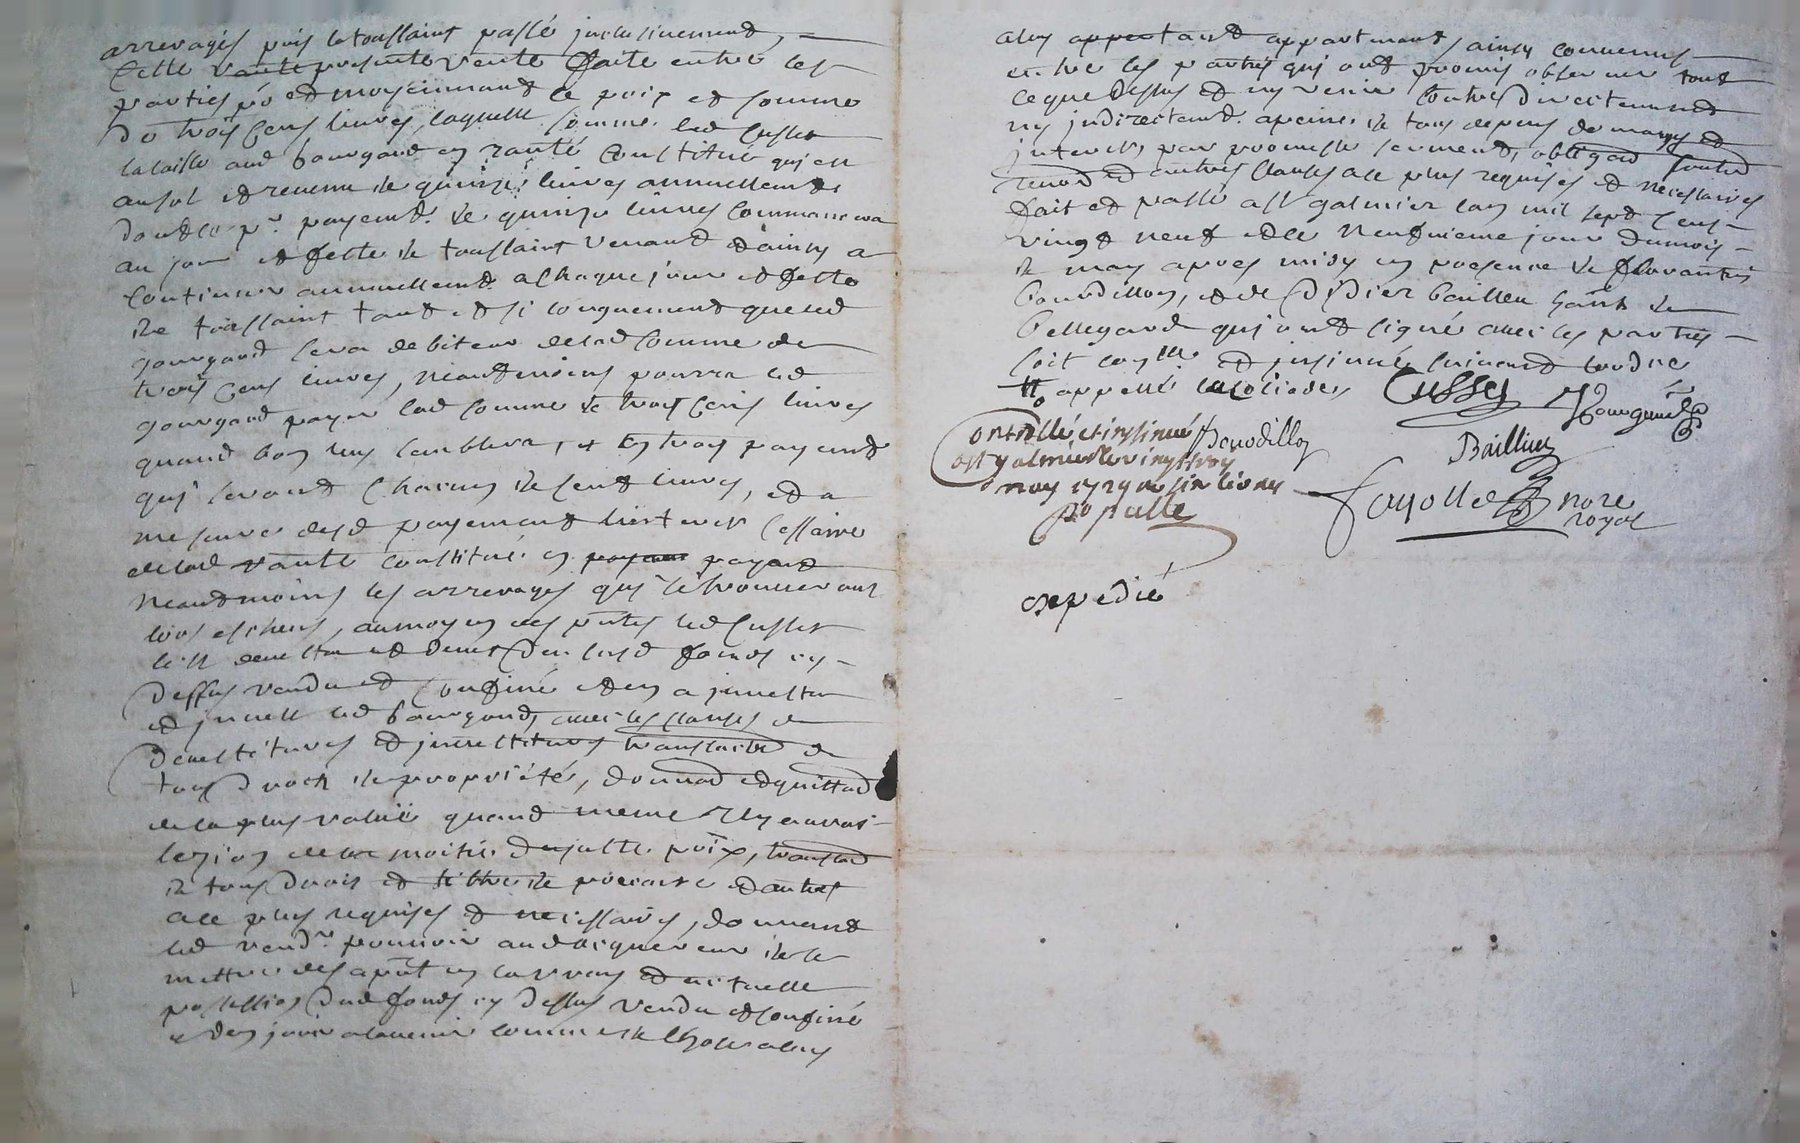 arrerages puis la toussaint passé jnclusivement,
Cette vante presente vente faite entre les
parties po et moyennant le prix et somme
de trois Cens livres, laquelle somme led Cusset
la laisse aud bourgand en rante Constitué qui est
au sol et revenu de quinze livres annuellement
dont le pr payemt. de quinze livres Commancera
au jour et feste de toussaint venant et ainsy a
Continuer annuellemt a Chaque jour et feste
de toussaint tant et si longuement que led
gourgand sera debiteur delad somme de
trois Cens livres, neantmoins pourra led
gourgand payer lad somme de trois Cens livres
quand bon luy semblera, et En trois payemt
qui seront Chacun de Cent livres, et a
mesure desd payement linterest Cessaira
de lad rante constitué en payant
neantmoins les arrerages qui se trouveront
lors escheus, au moyen des pntes led Cusset
sest devestu et demet du susd fonds cy
Dessus vendu et Confiné et en a jnvestu
et jnvest led bourgand, avec les clauses de
devestitures et jnvestitures translative de
tous droits de proprieté, donnant et quittant
de la plus value quand mesme Il y en auroit
lezion de la moitié du juste prix, transland
de tous droits et tiltre de precaire et autres
ale plus requises et necessaires, donnant
led vendr pouvoir aud acquereur de se
mettre des a pnt en la vraye et actuelle
possession dud fonds cy dessus vendu et confiné
et den jouir alavenir comme de Chose a luy
a luy appartenant ainsy convenus
entre les parties qui ont promis observer tout
ce que dessus et ny venir Contre directement
ny jndirectemt. apeine de tous depens domages et
jnterets, par promesse serment, obligaon soubm
renonc et autres Clauses ale plus requises et necessaires
fait et passé a St galmier lan mil sept Cens
vingt neuf et le neufvieme jour du mois
de may apres midy en presence de florantin
bourdillon, et de Didier bailleu habits de
bellegarde qui ont signé avec les parties
soit conlle et jnsinué suivant lordre
appellé
Cusset Bourgand
Controllé et insinué Bourdillon Baillieu
a St galmier le vingt trois
may 1729
Populle
Fayolle nore
royal
expedié